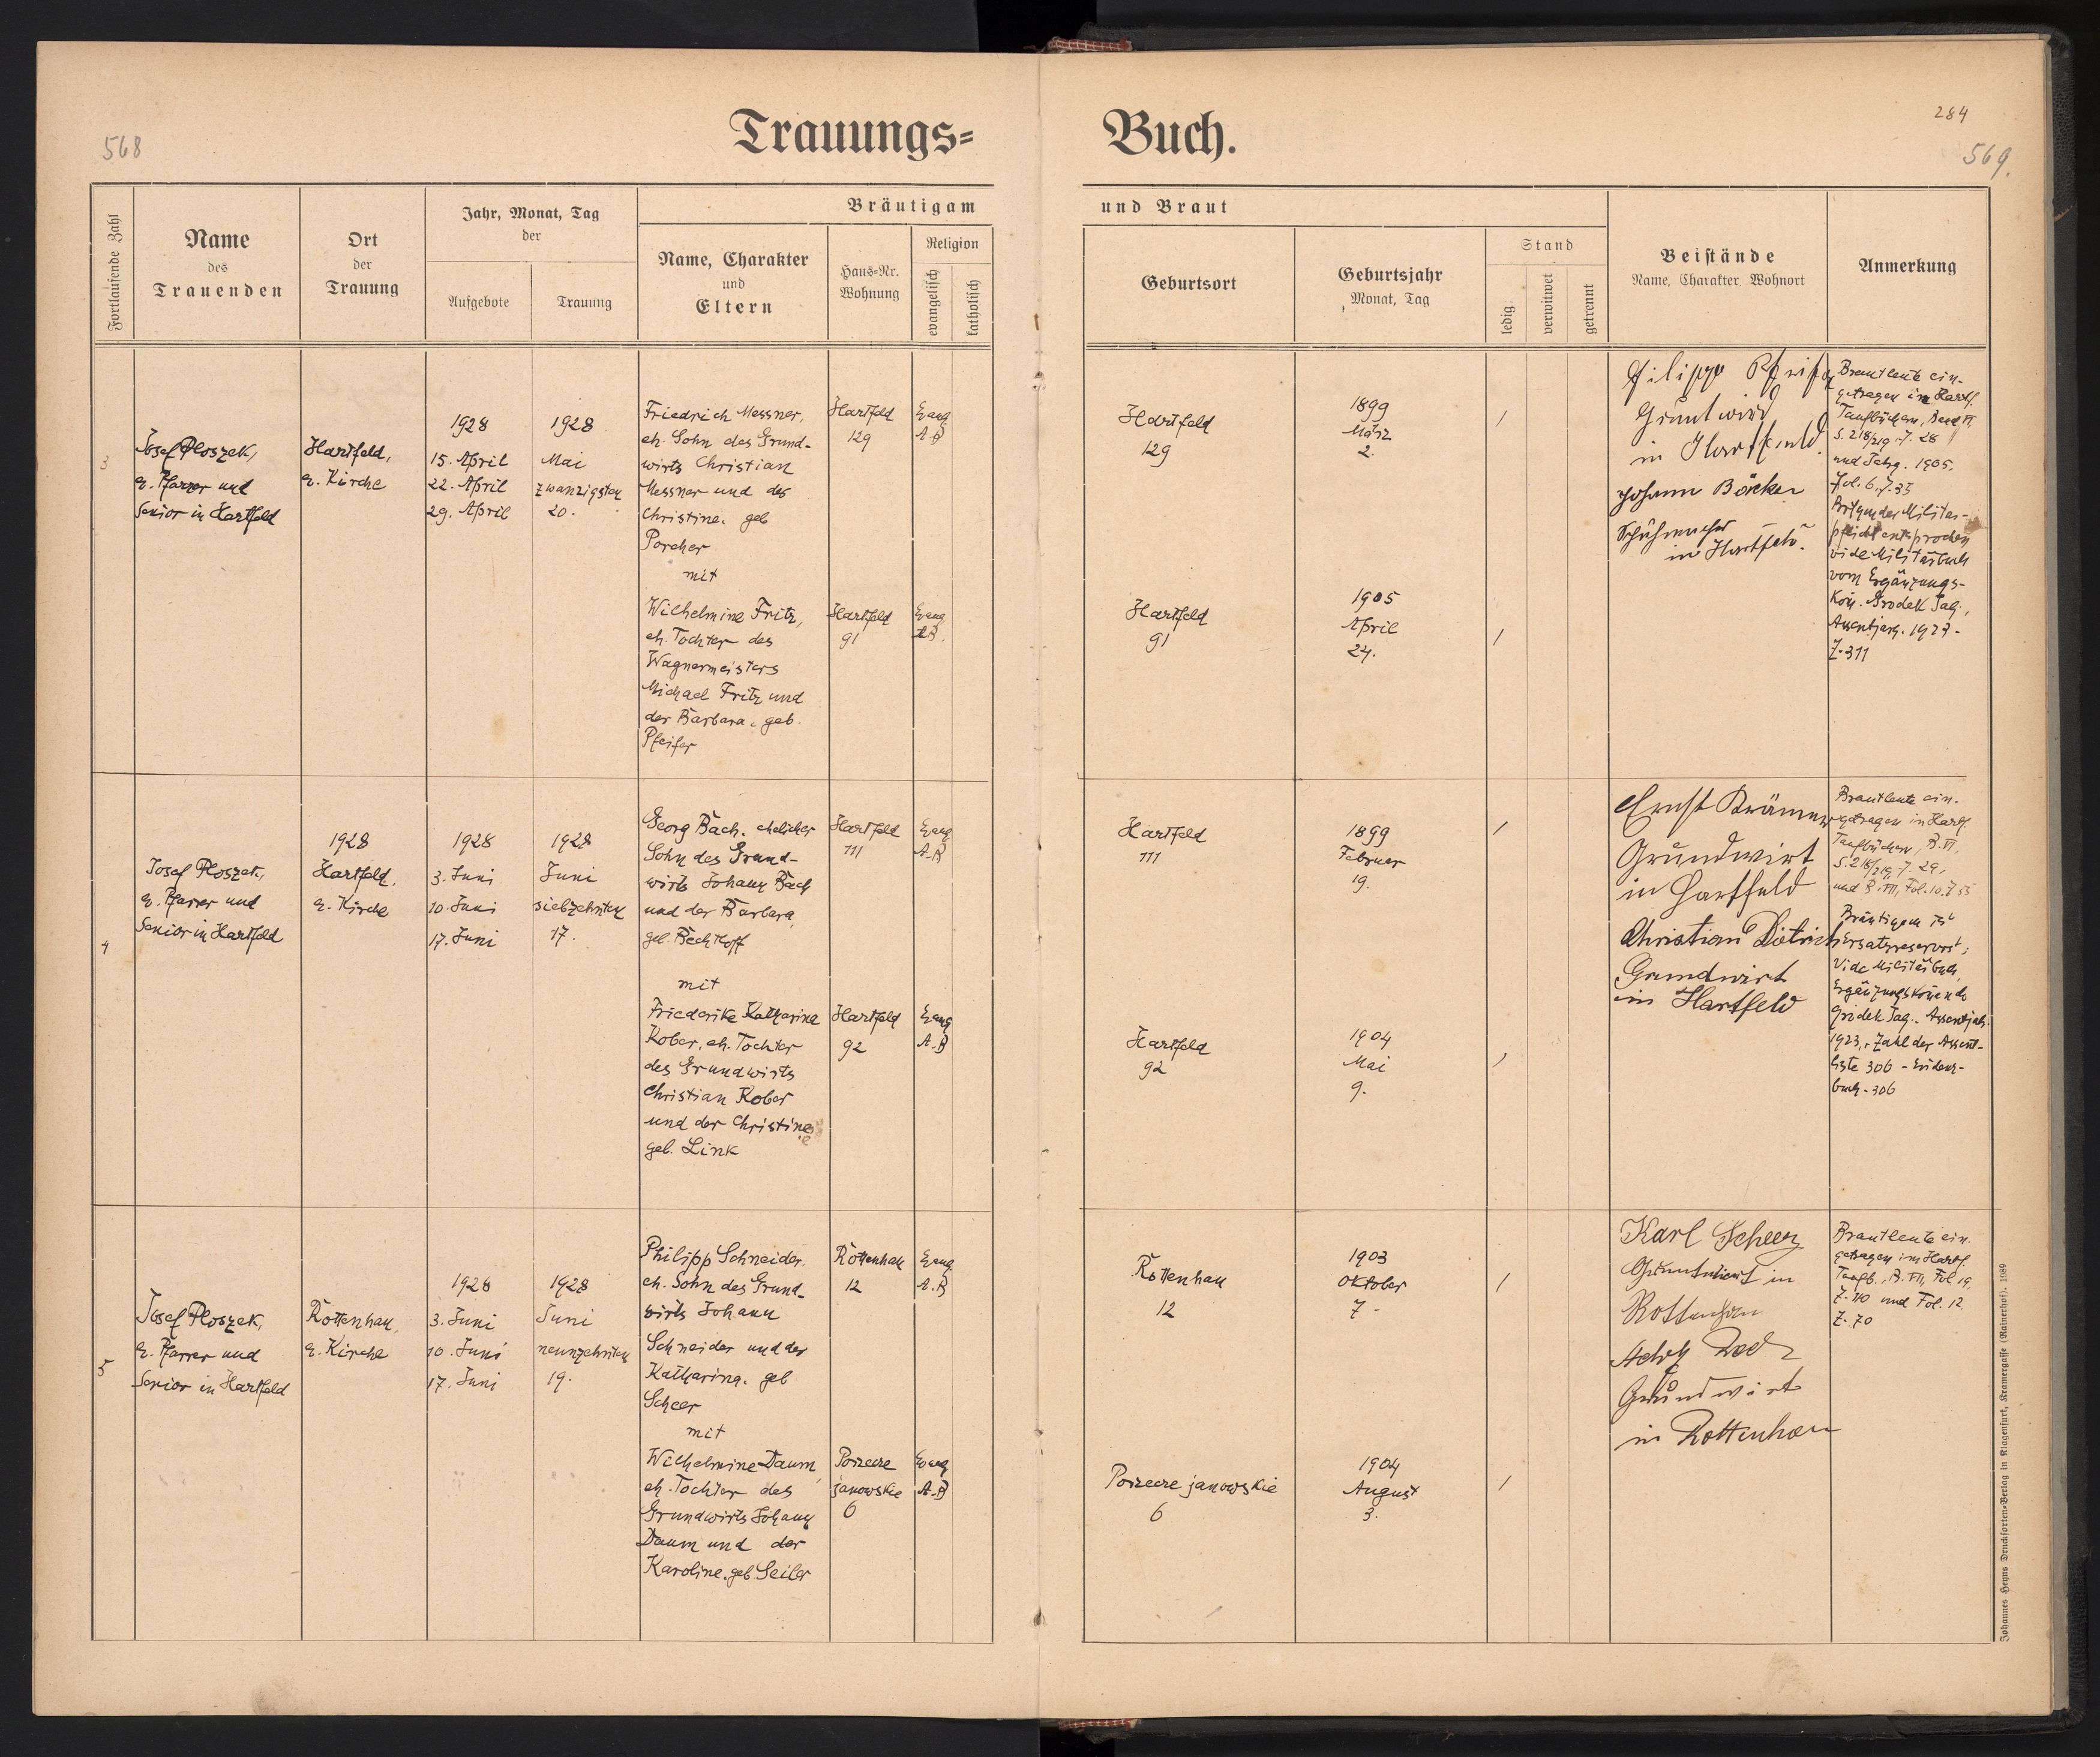 568
Trauungs=
Buch.
284
569.
Fortlaufende Zahl
Name
des
Trauenden
Ort
der
Trauung
Jahr, Monat, Tag
der
Aufgebote
Trauung
Bräutigam
Name, Charakter
und
Eltern
Haus=Nr.
Wohnung
Religion
evangelisch
katholisch
und Braut
Geburtsort
Geburtsjahr
Monat, Tag
Stand
ledig
verwitwet
getrennt
Beistände
Name, Charakter, Wohnort
Anmerkung
3
Josef Ploszek,
e. Pfarrer und
Senior in Hartfeld
Hartfeld,
e. Kirche
1928
15. April
22. April
29. April
1928
Mai
zwanzigsten
20.
Friedrich Messner,
eh. Sohn des Grund-
wirts Christian
Messner und der
Christine, geb
Porcher
mit
Wilhelmine Fritz,
eh. Tochter des
Wagnermeisters
Michael Fritz und
der Barbara, geb.
Pfeifer
Hartfeld
129
Evang
A.B
Hartfeld
91
Evang
A.B.
Hartfeld
129
1899
März
2.
/
Hartfeld
91
1905
April
24.
/
Filipp
Grundwirt
in Hartfeld.
Johann Bäcker
Schuhmacher
in Hartfeld.
Brautleute ein-
getragen in Hartf.
Taufbüchern, Band VI,
S. 218/219. Z. 28
und Jahrg. 1905.
Fol. 6. Z. 35
der Militär-
pflicht entsprochen
vide Militärbuch
vom Ergänzungs-
Kom. Grodek Jag.,
Assentjahr. 1923 -
Z. 311
4
Josef Ploszek,
e. Pfarrer und
Senior in Hartfeld
1928
Hartfeld,
e. Kirche
1928
3. Juni
10. Juni
17. Juni
1928
Juni
siebzehnten
17.
Georg Bach, ehelicher
Sohn des Grund-
wirts Johann Bach
und der Barbara,
geb. Bechtloff
mit
Friederike Katharina
Kober, eh. Tochter
des Grundwirts
Christian Kober
und der Christine
geb. Link
Hartfeld
111
Evang
A.B
Hartfeld
92
Evang
A.B
Hartfeld
111
1899
Februar
19.
/
Hartfeld
92
1904
Mai
9.
/
Ernst Krämer
Grundwirt
in Hartfeld
Christian Dietrich
Grundwirt
in Hartfeld
Brautleute ein-
getragen in Hartf.
Taufbüchern, B. VI,
S. 218/219, Z. 29,
und B. VII, Fol. 10. Z 55
Bräutigam ist
Ersatzreservist;
Vide Militärbuch,
Ergänzungskomando
Grodek Jag. - Assentjahr
1923, - Zahl der Assent-
liste 306 - Evidenz-
buch - 306
5
Josef Ploszek,
e. Pfarrer und
Senior in Hartfeld
Rottenhan,
e. Kirche
1928
3. Juni
10. Juni
17. Juni
1928
Juni
neunzehnten
19.
Philipp Schneider,
eh. Sohn des Grund-
wirts Johann
Schneider und der
Katharina, geb
Scheer
mit
Wilhelmine Daum,
eh. Tochter des
Grundwirts Johann
Daum und der
Karoline, geb Seiler
Rottenhan
12
Evang
A.B
Porzecze
janowskie
6
Evang
A.B
Rottenhan
12
1903
Oktober
7 -
/
Porzecze janowskie
6
1904
August
3.
/
Karl Scheer
Grundwirt in
Rottenhan
Grundwirt
in Rottenhan
Brautleute ein-
getragen im Hartf.
Taufb., B. VII, Fol 19,
Z. 110 und Fol. 12.
Z. 70
Johannes Heyns Drucksorten=Verlag in Klagenfurt, Kramergasse (Rainerhof). 1989